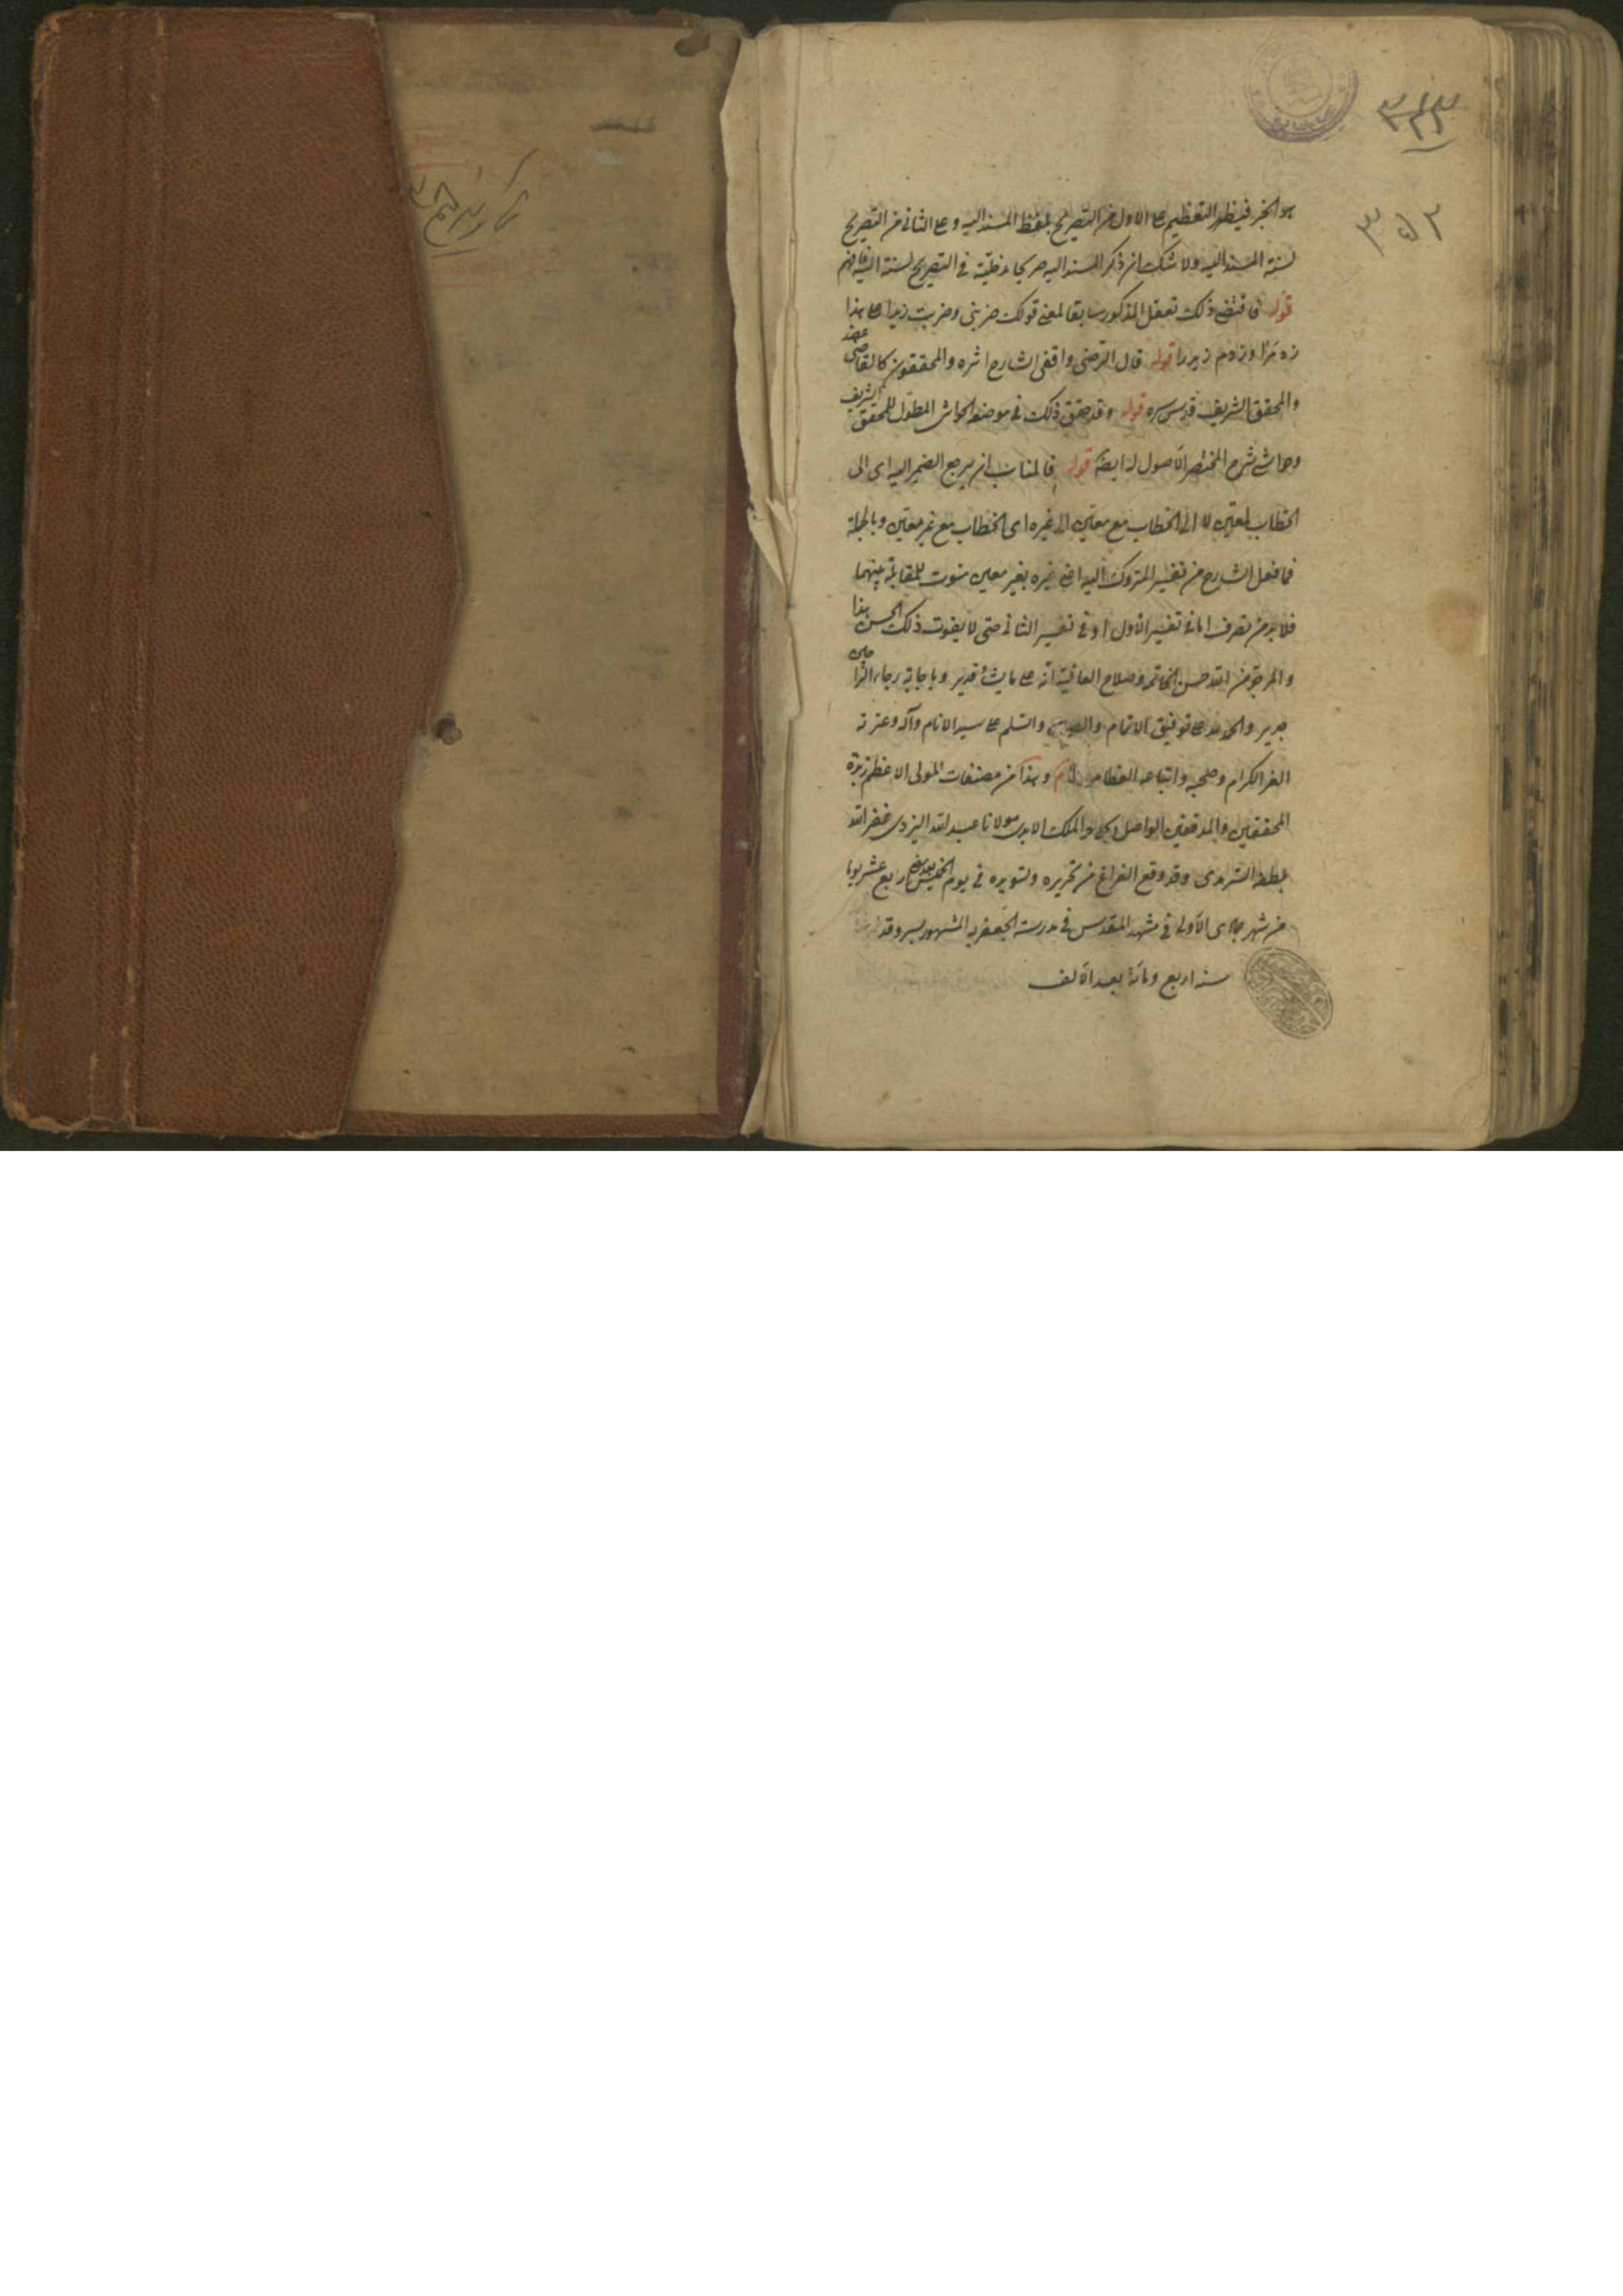 هو الخبر فيظهر التعظيم على الاول من التصريح بلفظ المسند اليه و على الثانى من التصريح
لنسبة المسند اليه ولا شك ان ذكر المسند اليه صريحا مدخليّة فى التصريح لنسبة اليه فافهم
قوله فاقتضى ذلك تعقل المذكور سابقا لمعنى قولك ضربنى وضربت زيدا على هذا
زد مرا و زدم زيد را قوله قال الرّضى واقفى الشارح اثره والمحققون كالقاضى عضد
والمحقق الشريف قدس سره قوله وقد حقق ذلك فى موضعه الحواشى المطوّل للمحقق الشريف
وحواشى شرح المختصر الاصول له ايضا قوله فالمناسب ان يرجع الضمير اليه اى الى
الخطاب لمعيّن لا الى الخطاب مع معيّن الى غيره اى الخطاب مع غير معيّن وبالجملة
فما فعل الشارح من تفسير المتروك اليه اعنى غيره بغير معين مفوت للمقابلة بينهما
فلابد من تصرف اما فى تفسير الاول او فى تفسير الثانى حتى لا يفوت ذلك الحسن هذا
والمرجوّ من الله حسن الخاتمة وصلاح العاقبة انّه على ما يشاء قدير وباجابة رجاء الراجين
جدير والحمد لله على توفيق الاتمام والصلوة والسّلم على سيد الانام وآله وعترته
الغر الكرام وصحبه واتباعه العظام تم وهذا من مصنفات المولى الاعظم زبدة
المحققين والمدققين الواصل بجوار الملك الابدى مولانا عبد الله اليزدى غفر الله
بلطفه السّرمدى وقد وقع الفراغ من تحريره وتسويده فى يوم الخميس رابع عشر يوما
من شهر جمادى الاولى فى مشهد المقدس فى مدرسة الجعفريه المشهور بسروقد
سنه اربع ومائة بعد الالف